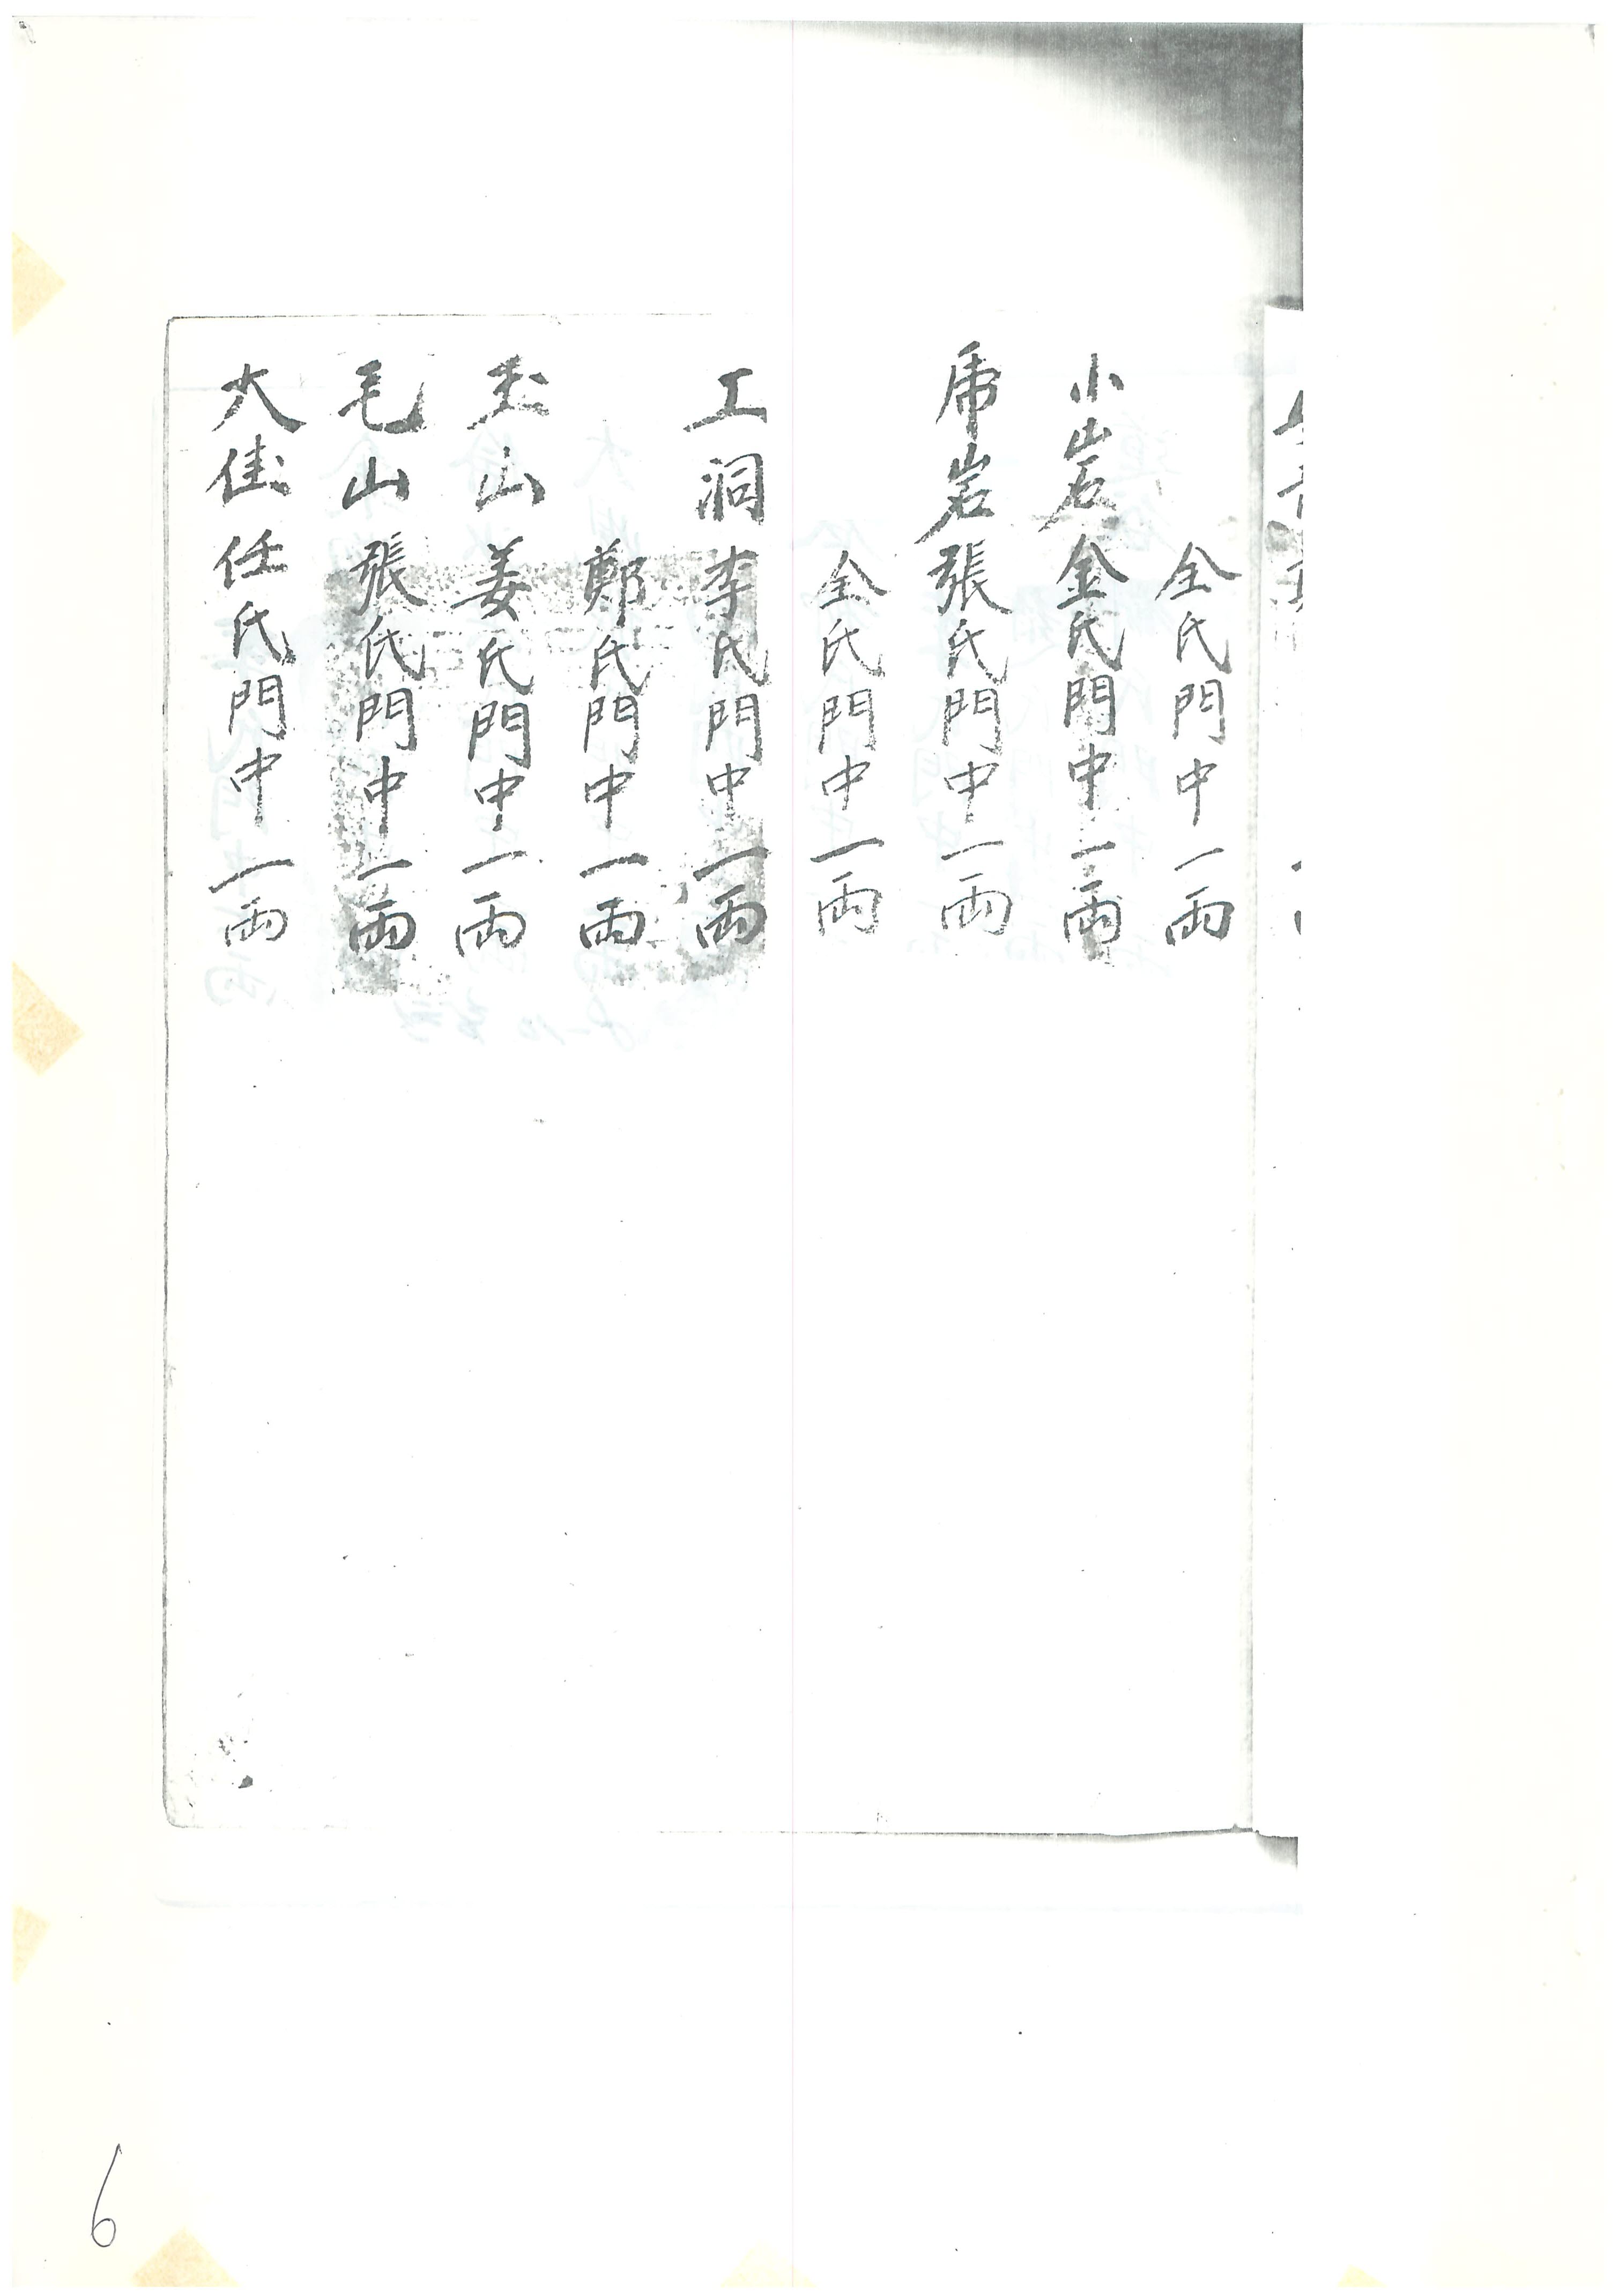 全氏門中一兩
小岩金氏門中一兩
乕岩張氏門中一兩
全氏門中一兩
工洞李氏門中一兩
鄭氏門中一兩
玉山姜氏門中一兩
毛山張氏門中一兩
大佳任氏門中一兩
6